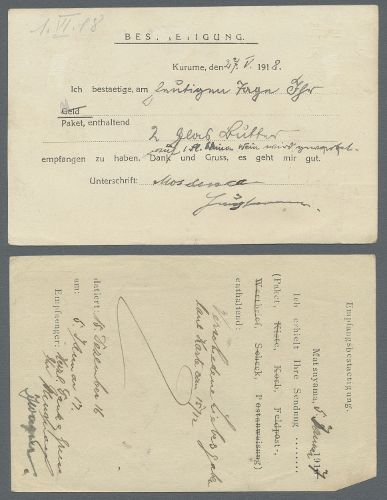 1. VI. 18
BEST ETIGUNG.
Kurume, den 27. V. 1918.
Ich bestaetige, am heutigen Tage Ihr
Geld
Paket, enthaltend
2 Glas Butter
empfangen zu haben. Dank und Gruss, es geht mir gut.
Unterschrift:
Empfangsbestaetigung.
Matsuyama, 191
Ich erhielt Ihre Sendung ........
(Paket, Kiste, Korb, Feldpost-,
Wertbrief, Scheck, Postanweisung)
enthaltend:
Verschiedene Liebesgaben
laut Karte vom 18/12
datiert 18. Dezember 16
am: 6. Januar 17.
Empfaenger: